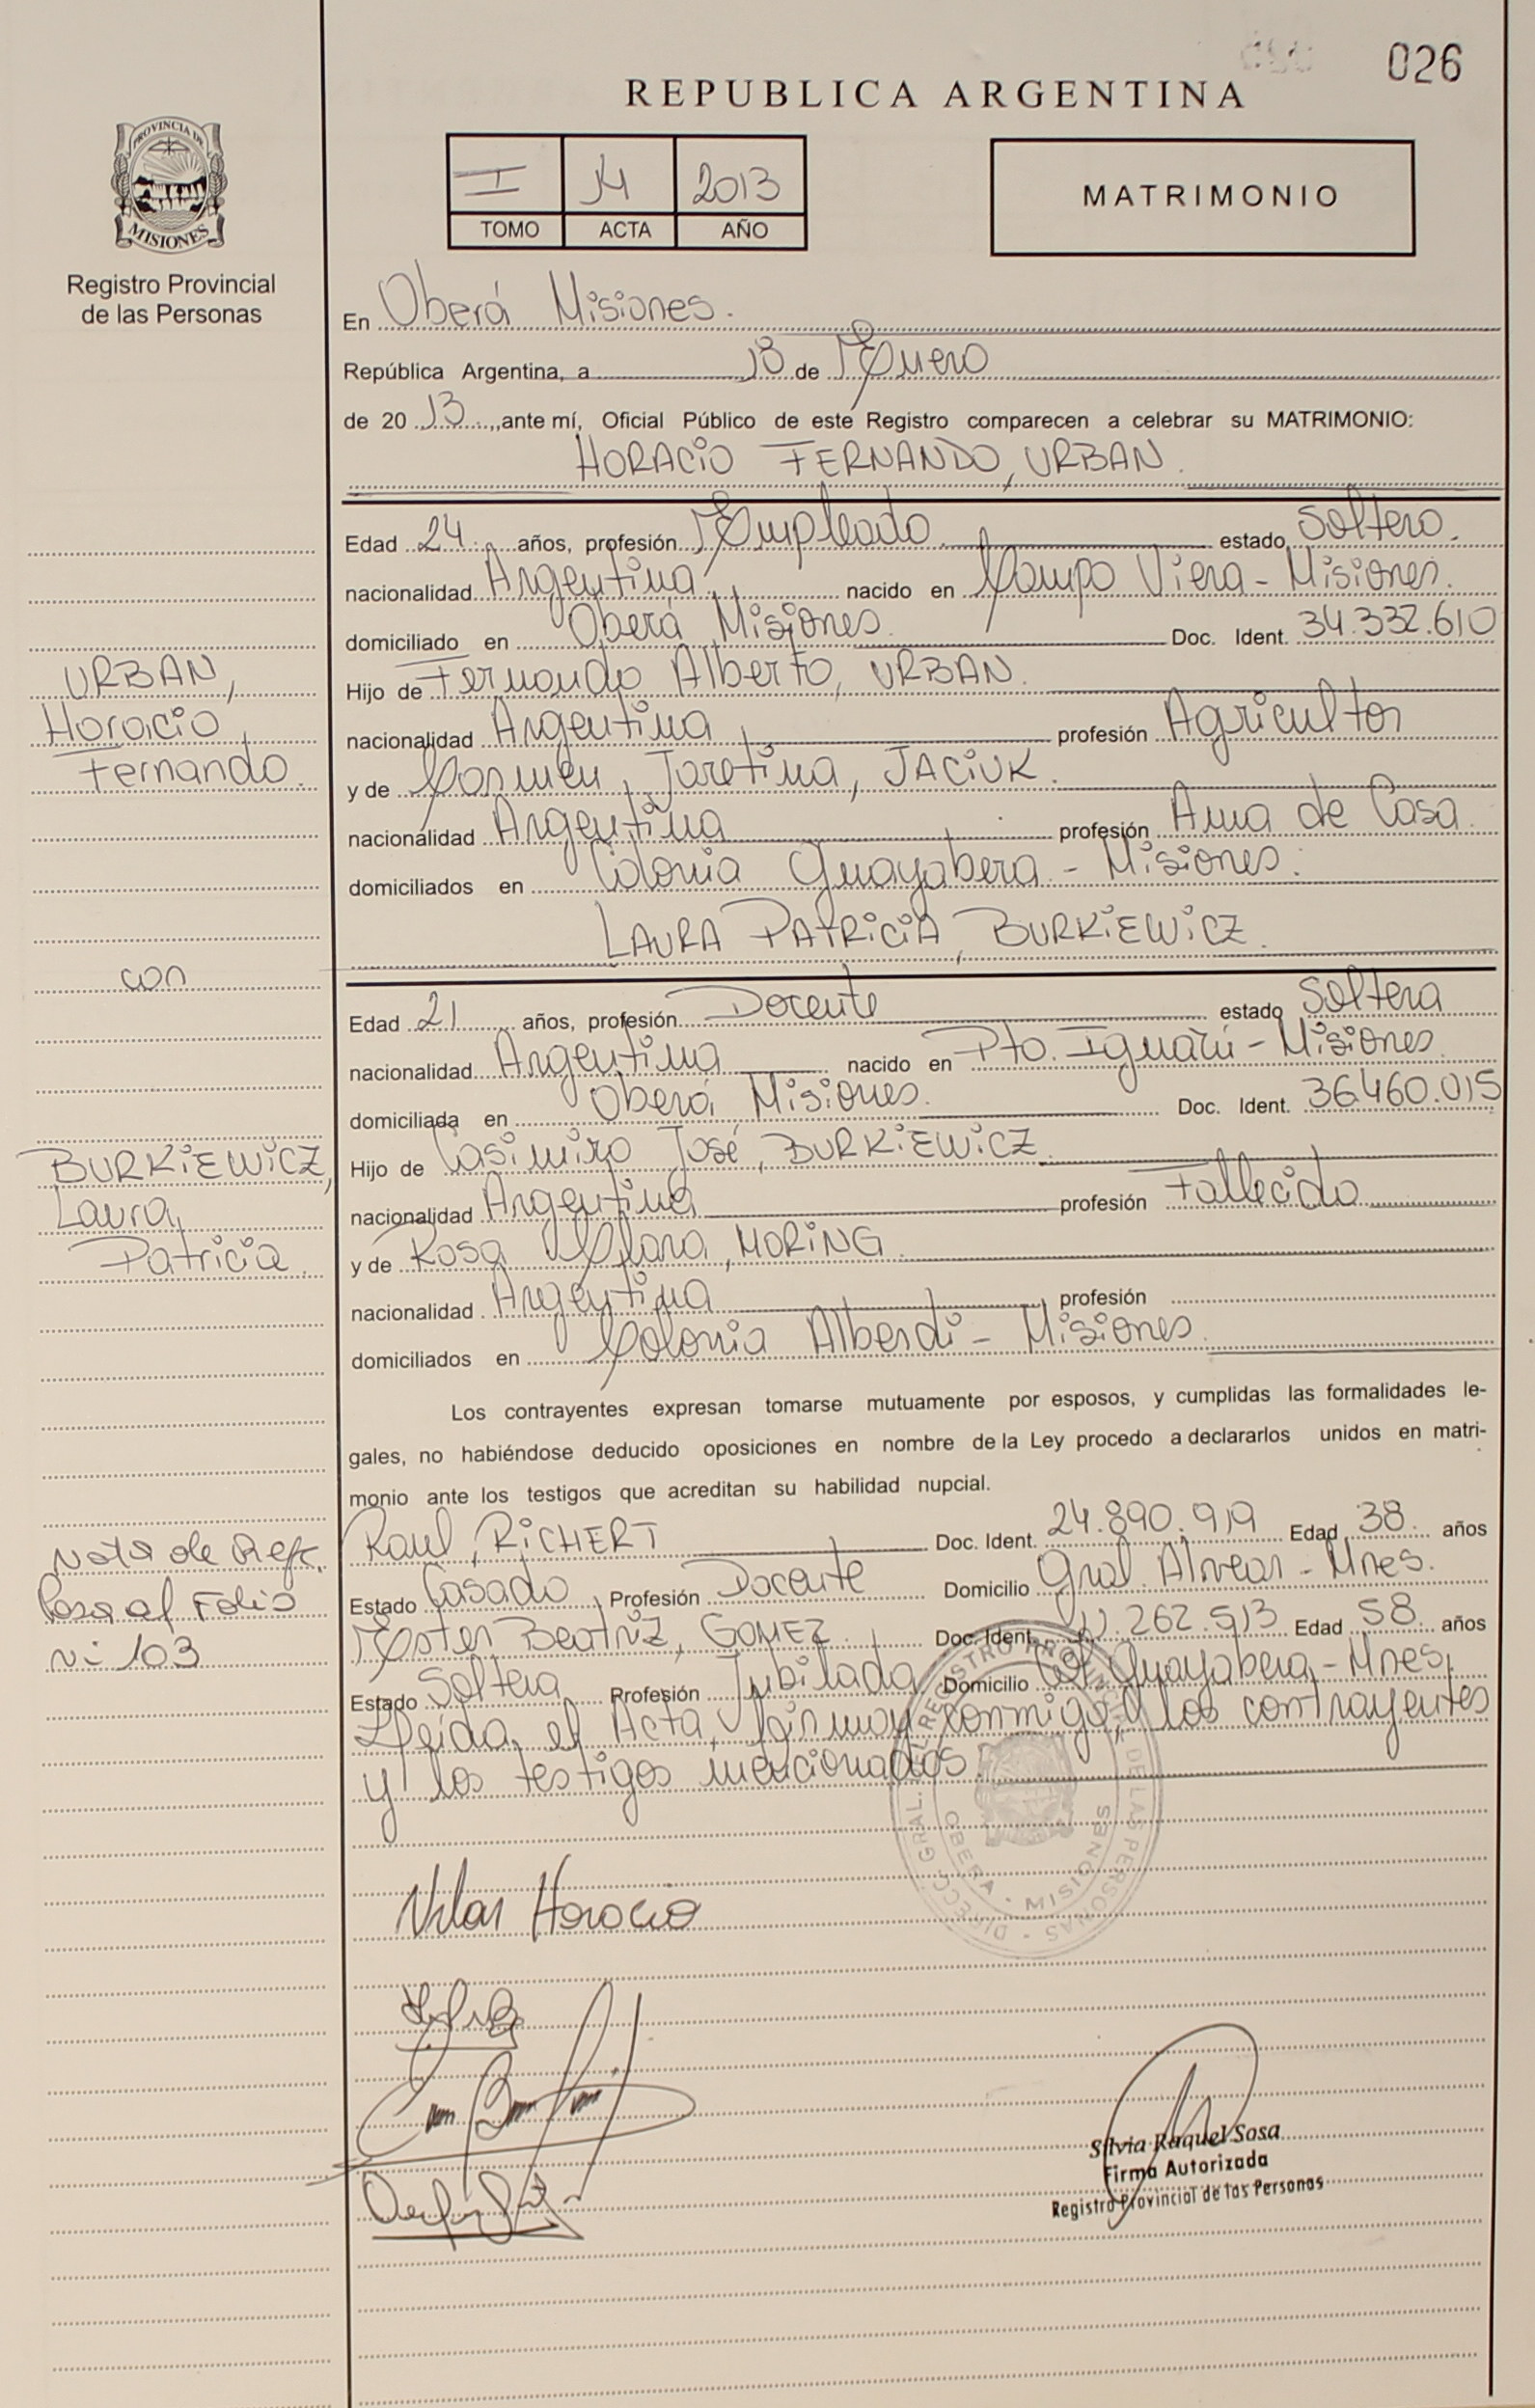 026
REPUBLICA ARGENTINA
PROVINCIA DE
MISIONES
Registro Provincial
de las Personas
I 14 2013
TOMO ACTA AÑO
MATRIMONIO
En Oberá Misiones.
República Argentina, a 18 de Enero
de 20 13 ante mí, Oficial Público de este Registro comparecen a celebrar su MATRIMONIO:
HORACIO FERNANDO, URBAN.
Edad 24 años, profesión Empleado estado Soltero.
nacionalidad Argentina nacido en Campo Viera - Misiones.
domiciliado en Oberá Misiones. Doc. Ident. 34.332.610
URBAN,
Horacio
Fernando.
Hijo de Fernando Alberto, URBAN.
nacionalidad Argentina profesión Agricultor
y de Carmen, JACIUK.
nacionalidad Argentina profesión Ama de Casa.
domiciliados en Colonia Guayabera - Misiones.
LAURA PATRICIA, BURKIEWICZ.
con
Edad 21 años, profesión Docente estado Soltera
nacionalidad Argentina nacido en Pto. Iguazú - Misiones.
domiciliada en Oberá Misiones. Doc. Ident. 36.460.015
BURKIEWICZ,
Laura,
Patricia.
Hijo de Casimiro José, BURKIEWICZ.
nacionalidad Argentina profesión Fallecido
y de Rosa Clara, MORING.
nacionalidad Argentina profesión
domiciliados en Colonia Alberdi - Misiones.
Los contrayentes expresan tomarse mutuamente por esposos, y cumplidas las formalidades le-
gales, no habiéndose deducido oposiciones en nombre de la Ley procedo a declararlos unidos en matri-
monio ante los testigos que acreditan su habilidad nupcial.
Nota de Ref.
Pasa al Folio
Nº 103
Raul, RICHERT Doc. Ident. 24.890.919 Edad 38. años
Estado Casado Profesión Docente Domicilio Gral. Alvear - Mnes.
Ester Beatriz, GOMEZ. Doc. Ident. 11.262.513 Edad 58. años
Estado Soltera Profesión Jubilada Domicilio Col. Guayabera - Mnes.
Leida el Acta, firman conmigo, los contrayentes
y los testigos mencionados.
DIRECC. GRAL. DEL REGISTRO PROVINCIAL DE LAS PERSONAS
OBERA - MISIONES
Horacio
Silvia Raquel Sosa
Firma Autorizada
Registro Provincial de las Personas